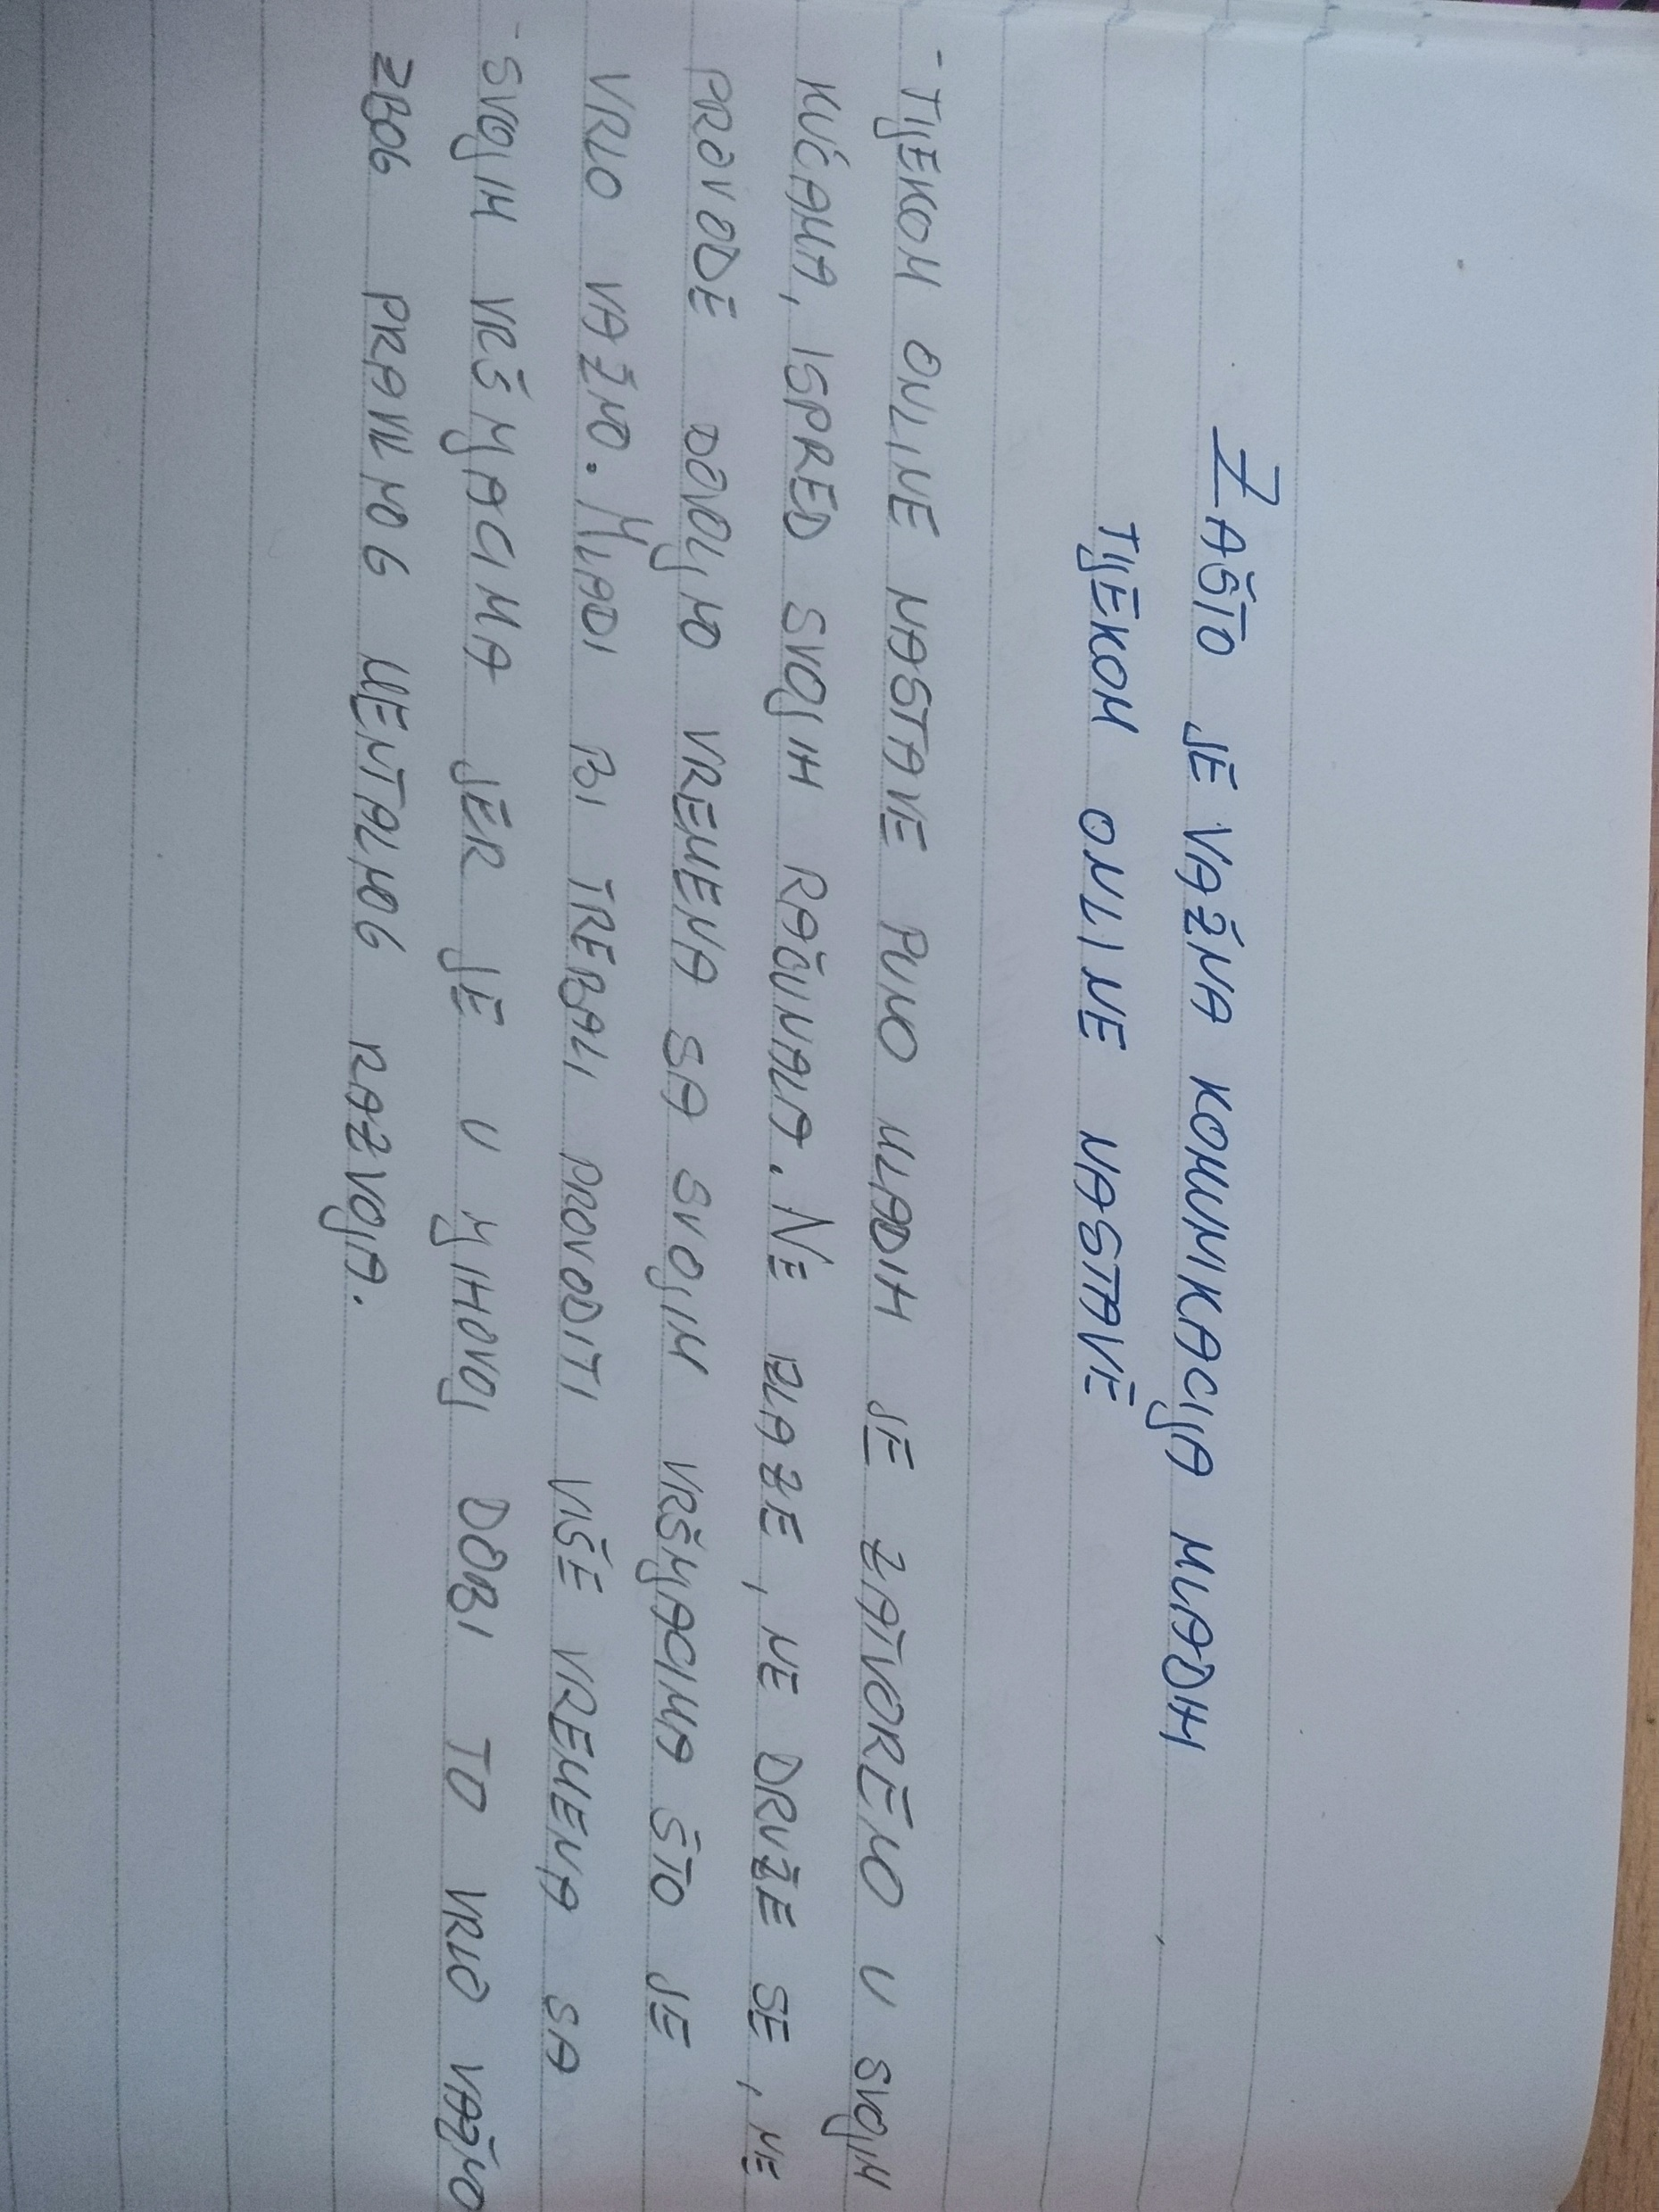 ZAŠTO JE VAŽNA KOMUNIKACIJA MLADIH
TIJEKOM ONLINE NASTAVE
- TIJEKOM ONLINE NASTAVE PUNO MLADIH JE ZATVORENO U SVOJIM
KUĆAMA, ISPRED SVOJIH RAČUNALA. NE IZLAZE, NE DRUŽE SE, NE
PROVODE DOVOLJNO VREMENA SA SVOJIM VRŠNJACIMA ŠTO JE
VRLO VAŽNO. MLADI BI TREBALI PROVODITI VIŠE VREMENA SA
- SVOJIM VRŠNJACIMA JER JE U NJIHOVOJ DOBI TO VRLO VAŽNO
ZBOG PRAVILNOG MENTALNOG RAZVOJA.